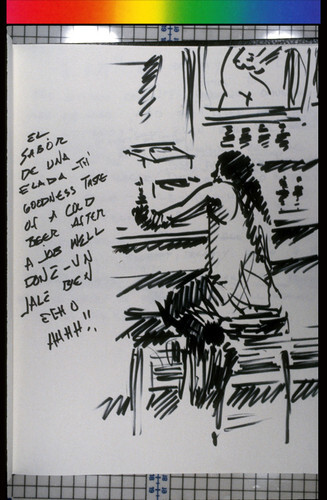 EL
SABOR
DE UNA
ELADA - THI
GOODNESS TASTE
OF A COLD
BEER AFTER
A JOB WELL
DONE - UN
JALE BIEN
ECHO
AHHH!!